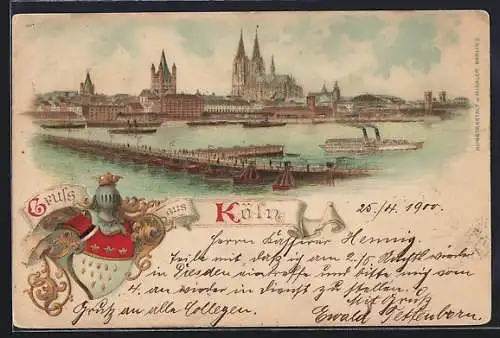 Gruss aus Köln
25./4. 1900.
Herrn Kassierer Hennig
Teile mit, daß ich am 2./5. wieder
in Dresden eintreffe und bitte mich vom
4. an wieder in Dienst zu stellen.
Mit Gruß
Gruß an alle Collegen. Ewald